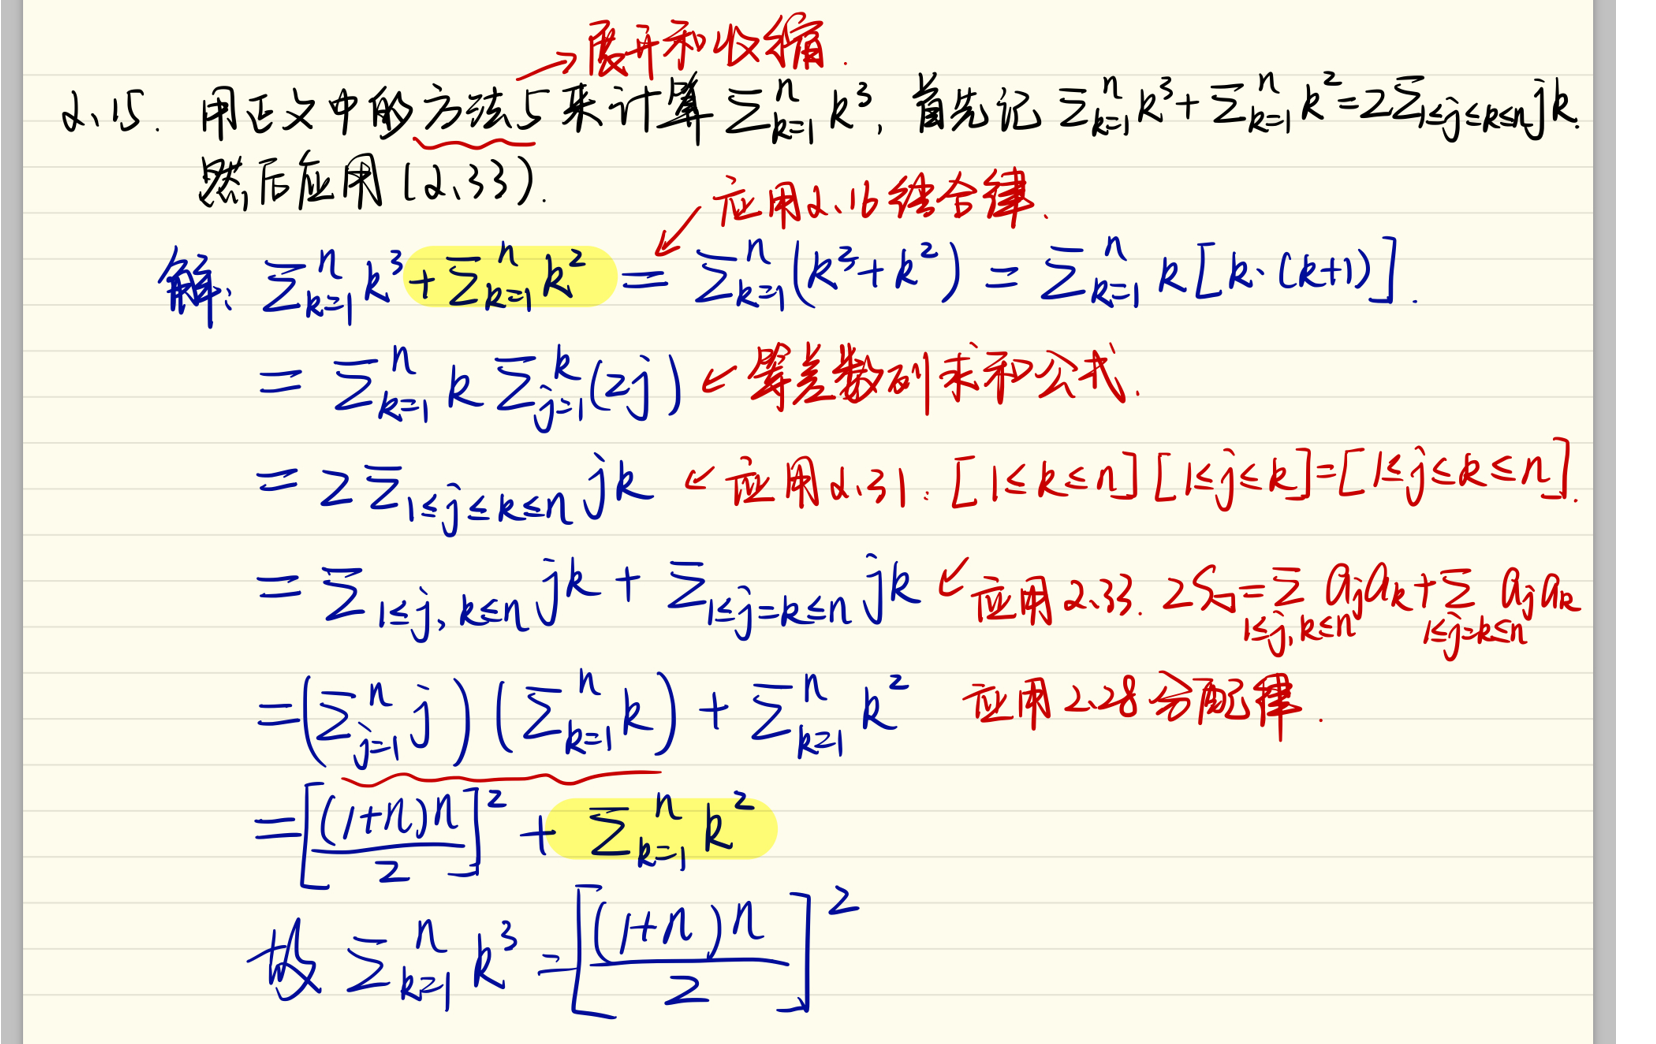 →展开和收缩.
2.15. 用正文中的方法5来计算 ∑_{k=1}^{n} k³, 首先记 ∑_{k=1}^{n} k³+∑_{k=1}^{n} k²=2∑_{1≤j≤k≤n} jk.
然后应用(2.33).
应用2.16结合律.
解: ∑_{k=1}^{n} k³+∑_{k=1}^{n} k² = ∑_{k=1}^{n}(k³+k²) = ∑_{k=1}^{n} k[k·(k+1)].
= ∑_{k=1}^{n} k ∑_{j=1}^{k}(2j) ← 等差数列求和公式.
= 2∑_{1≤j≤k≤n} jk ← 应用2.31: [1≤k≤n][1≤j≤k]=[1≤j≤k≤n].
= ∑_{1≤j,k≤n} jk + ∑_{1≤j=k≤n} jk ← 应用2.33. 2S_◺=∑_{1≤j,k≤n} a_j a_k+∑_{1≤j=k≤n} a_j a_k
=(∑_{j=1}^{n} j)(∑_{k=1}^{n} k) + ∑_{k=1}^{n} k² 应用2.28分配律.
=[(1+n)n/2]² + ∑_{k=1}^{n} k²
故 ∑_{k=1}^{n} k³ = [(1+n)n/2]²